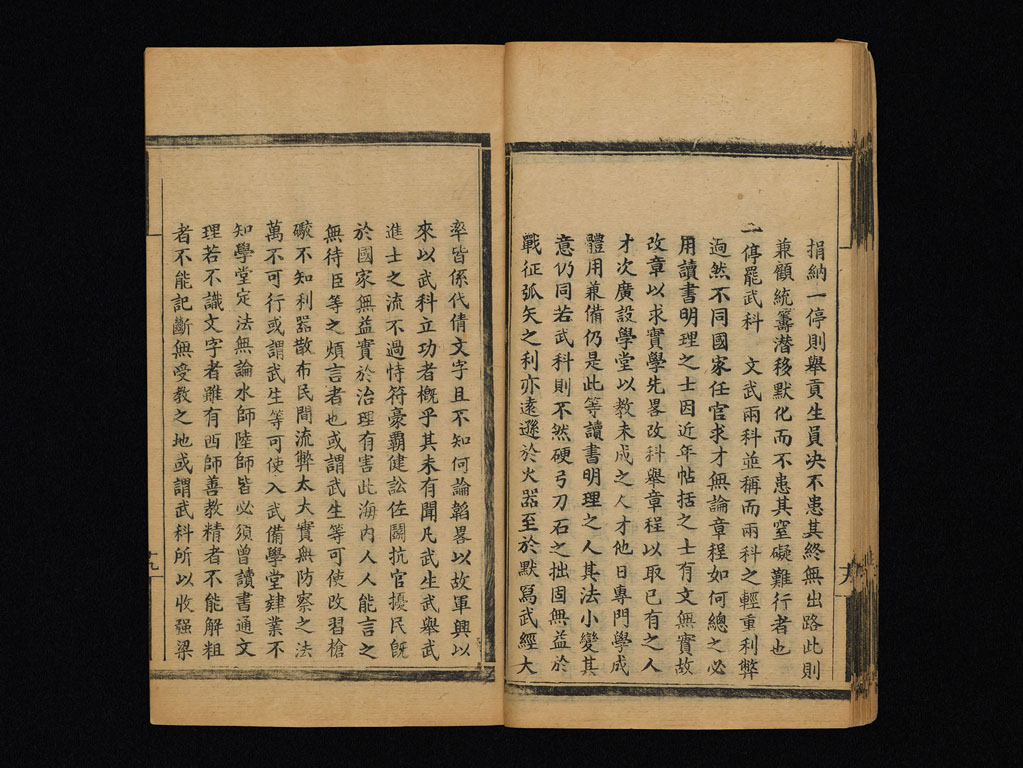 捐納一停則舉貢生員決不患其終無出路此則
兼顧統籌潛移默化而不患其窒礙難行者也
一停罷武科 文武兩科並稱而兩科之輕重利弊
逈然不同國家任官求才無論章程如何總之必
用讀書明理之士因近年帖括之士有文無實故
改章以求實學先畧改科舉章程以取已有之人
才次廣設學堂以教未成之人才他日專門學成
體用兼備仍是此等讀書明理之人其法小變其
意仍同若武科則不然硬弓刀石之拙固無益於
戰征弧矢之利亦遠遜於火器至於默寫武經大
率皆係代倩文字且不知何論韜畧以故軍興以
來以武科立功者概乎其未有聞凡武生武舉武
進士之流不過恃符豪霸健訟佐鬬抗官擾民旣
於國家無益實於治理有害此海內人人能言之
無待臣等之煩言者也或謂武生等可使改習槍
礮不知利器散布民間流弊太大實無防察之法
萬不可行或謂武生等可使入武備學堂肄業不
知學堂定法無論水師陸師皆必須曾讀書通文
理若不識文字者雖有西師善教精者不能解粗
者不能記斷無受教之地或謂武科所以收强梁
十九